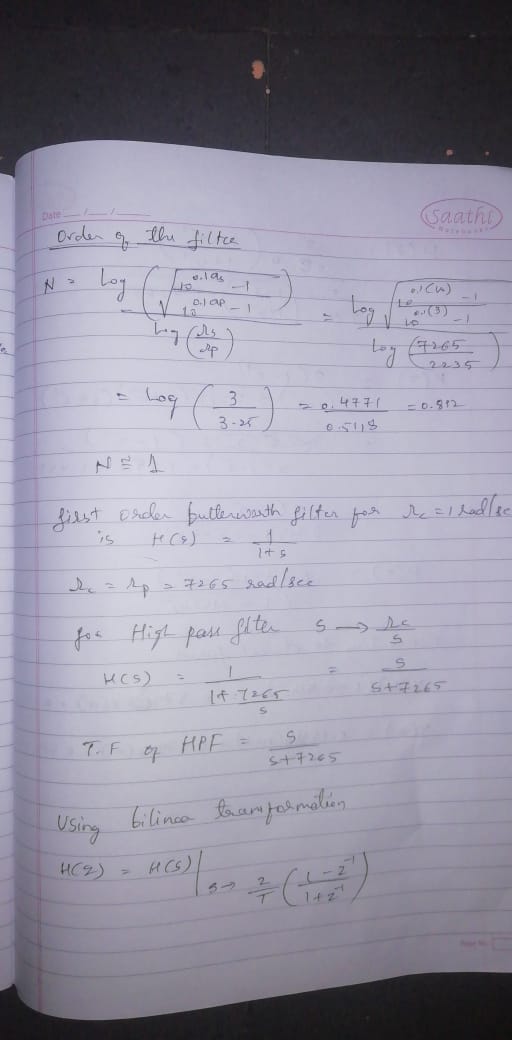 Date __/__/__
Saathi
Notebooks
Order of the filter
N = log ( √(10^0.1αs - 1 / 10^0.1αp - 1) ) / log (Ωs / Ωp) = log √(10^0.1() - 1 / 10^0.1(3) - 1) / log (7265 / 2235)
= log ( 3 / 3.25 ) = 0.4771 / 0.5118 = 0.
N ≅ 1
first order butterworth filter for Ωc = 1 rad/sec
is H(s) = 1 / 1+s
Ωc = Ωp = 7265 rad/sec
for High pass filter s → Ωc / s
H(s) = 1 / 1+ 7265 / s = s / s+7265
T.F of HPF = s / s+7265
Using bilinea transformation
H(z) = H(s) | s→ 2/T ( 1-z^-1 / 1+z^-1 )
Page No.